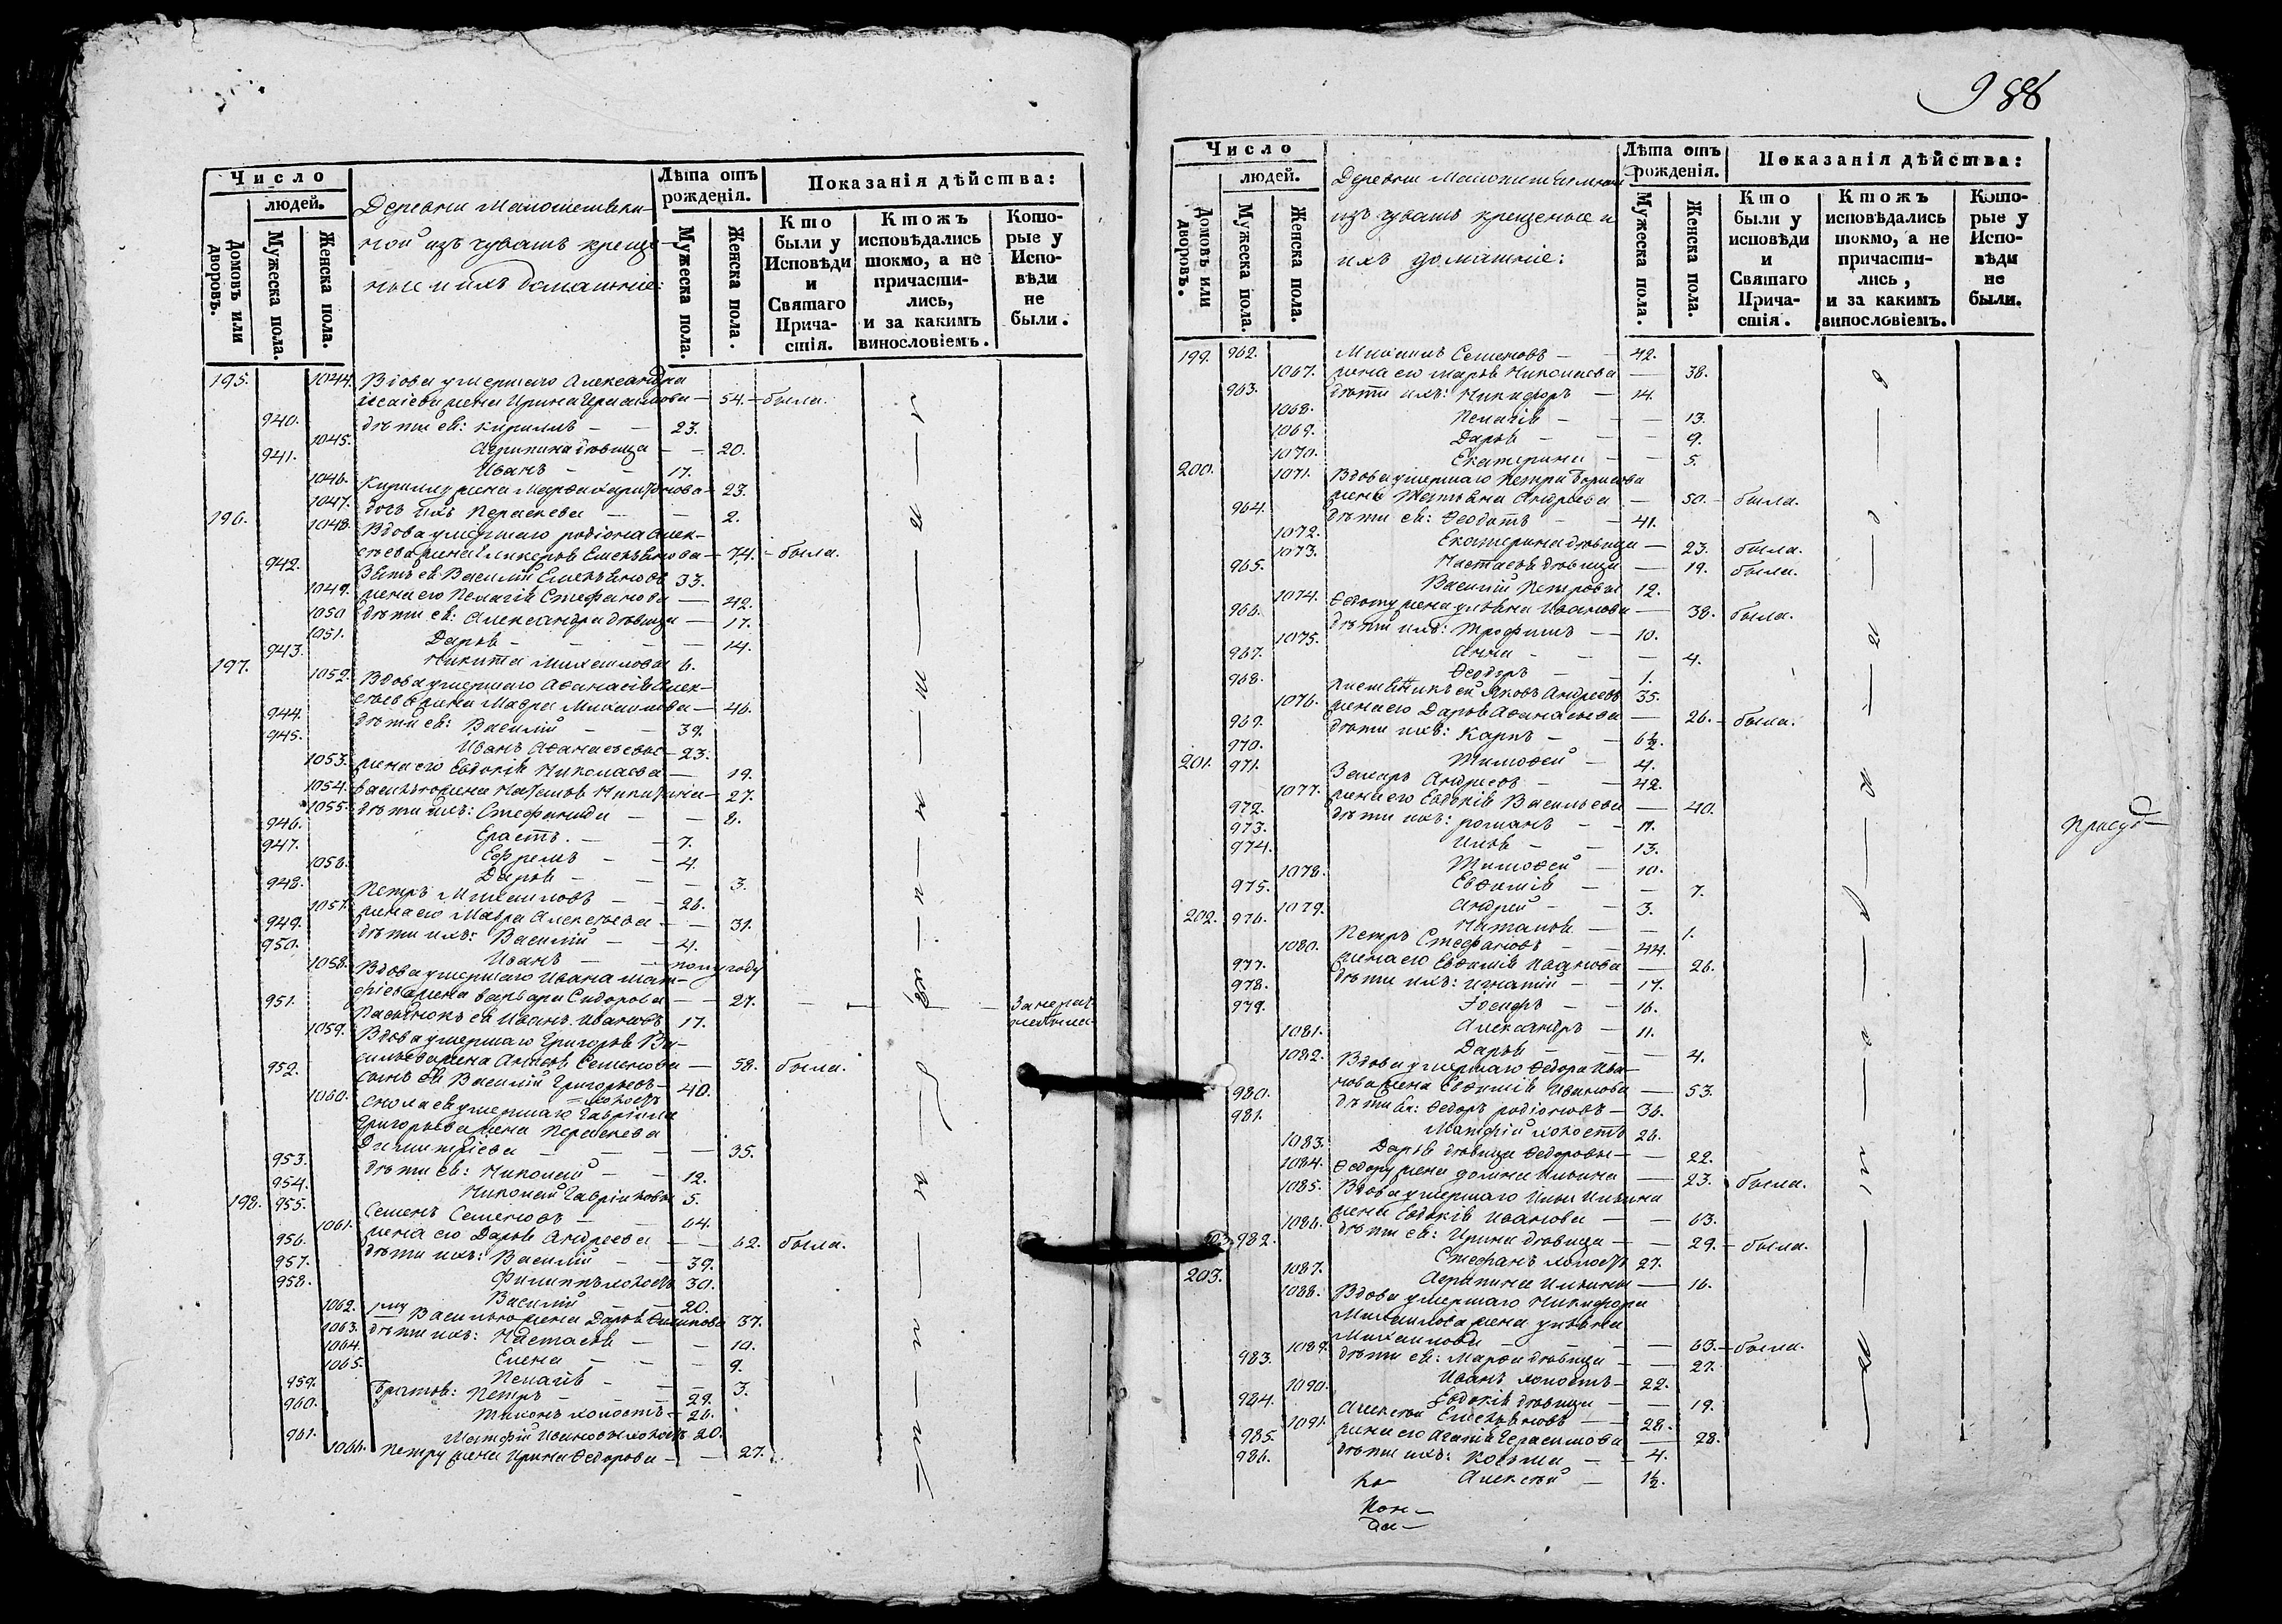 Число
людей.
Домовъ или дворовъ.
Мужеска пола.
Женска пола.
нои изъ чувашъ креще-
ные и ихъ домашніе:
Лѣта отъ рожденія.
Мужеска пола.
Женска пола.
Показанія дѣйства:
Кто были у Исповѣди и Святаго Прича-стія.
Ктожъ исповѣдались токмо, а не причасти-лись, и за какимъ винословіемъ.
Кото-рые у Испо-вѣди не были.
195. 1044. Вдова умершаго Александра
Исаіева жена Ирина Герасимова — 54. — была.
940. дѣти ея: Кириллъ — — 23.
1045. Агрипина дѣвица — — 20.
941. Иванъ — — 17.
1046. Кириллу жена Марѳа Харитонова — 23.
1047. дочь ихъ Параскева — — 2.
196. 1048. Вдова умершаго Родіона Алек-
сѣева жена Гликерія Емельянова — 74. — была.
942. Зять ея Василій Емельяновъ 33.
1049. жена его Пелагія Стефанова — 42.
1050 дѣти ея: Александра дѣвица — 17.
1051. Дарья — — 14.
943. Никита Михаиловы 6.
197. 1052. Вдова умершаго Аѳанасія Алек-
сѣева жена Мавра Михаилова — 46.
944. дѣти ея: Василій — — 39.
945. Иванъ Аѳанасьевы — 23.
1053. жена его Евдокія Николаева — 19.
1054. Василью жена Наталья Никитина — 27.
1055. дѣти ихъ: Стефанида — — 8.
946. Ерастъ — — 7.
947. Ефремъ — — 4.
1056. Дарья — — 3.
948. Петръ Михаиловъ — — 26.
1057. жена его Мавра Алексѣева — — 31.
949. дѣти ихъ: Василій — — 4.
950. Иванъ — — полугоду
1058. Вдова умершаго Ивана Мат-
фіева жена Варвара Сидорова — — 27.
951. Пасынокъ ея Иванъ Ивановъ 17.
1059. Вдова умершаго Григорья Ва-
сильева жена Анисья Семенова — 58. была.
952. сынъ ея Василій Григорьевъ — 40.
холостъ
1060. Сноха ея умершаго Гавріила
Григорьева жена Параскева
Димитріева — — 35.
953. дѣти ея: Николай — — 12.
954. Николай Гавріиловы 5.
198. 955. Семенъ Семеновъ — — 64.
1061. жена его Дарья Андреева — — 62. была.
956. дѣти ихъ: Василій — — 39.
957. Филиппъ холостъ 30.
958. Василій — — 20.
1062. 1му Василью жена Дарья Филипова 37.
1063. дѣти ихъ: Настасья — — 10.
1064. Елена — — 9.
1065. Пелагія — — 3.
959. Братья: Петръ — — 29.
960. Тихонъ холостъ — 26.
961. Матфій Ивановы холостъ 20.
1066. Петру жена Ирина Ѳедорова — — 27.
Число
людей.
Домовъ или дворовъ.
Мужеска пола.
Женска пола.
изъ чувашъ крещеные и
ихъ домашніе:
Лѣта отъ рожденія.
Мужеска пола.
Женска пола.
Показанія дѣйства:
Кто были у исповѣди и Святаго Прича-стія.
Ктожъ исповѣдались токмо, а не причасти-лись, и за какимъ винословіемъ.
Кото-рые у Испо-вѣди не были.
199. 962. Михаилъ Семеновъ — — 42.
1067. жена его Марья Николаева — 38.
963. дѣти ихъ: Никифоръ — 14.
1068. Пелагія — — 13.
1069. Дарья — — 9.
1070. Екатерина — — 5.
200. 1071. Вдова умершаго Петра Борисова
жена Татьяна Андреева — 50. — была.
964. дѣти ея: Ѳеодотъ — — 41.
1072. Екатерина дѣвица — 23. была.
1073. Настасья дѣвица — 19. была.
965. Василій Петровы 12.
1074. Ѳедоту жена Ульяна Иванова — 38. была.
966. дѣти ихъ: Трофимъ — — 10.
1075. Анна — — 4.
967. Ѳеодоръ — — 1.
968. Яковъ Андреевъ 35.
1076. жена его Дарья Аѳанасьева — 26. — была.
969. дѣти ихъ: Карпъ — — 6½.
970. Тимоѳей — 4.
201. 971. Захаръ Андреевъ — — 42.
1077. жена его Евдокія Васильева — 40.
972. дѣти ихъ: Романъ — — 17.
973. Илья — — 13.
974. Тимоѳей — 10.
1078. Евѳимія — — 7.
975. Андрей — — 3.
1079. Наталья — — 1.
202. 976. Петръ Стефановъ — — 44.
1080. жена его Евѳимія Иванова — 26.
977. дѣти ихъ: Игнатій — — 17.
978. Іосифъ — — 16.
979. Александръ — 11.
1081. Дарья — — 4.
1082. Вдова умершаго Ѳедора Ива-
нова жена Евѳимія Иванова — 53.
980. дѣти ея: Ѳедоръ Родіоновъ — 36.
981. Матфій холостъ 26.
1083. Дарья дѣвица Ѳедоровы — — 22.
1084. Ѳедору жена Домна Ильина — 23. была.
1085. Вдова умершаго Ильи Ильина
жена Евдокія Иванова — — 63.
1086. дѣти ея: Ирина дѣвица — — 29. — была.
982. Стефанъ холостъ 27.
1087. Агрипина Ильины — 16.
203. 1088. Вдова умершаго Никифора
Михаилова жена Ульяна
Михаилова — — 63. — была.
1089. дѣти ея: Марѳа дѣвица — — 27.
983. Иванъ холостъ — 22.
1090. Евдокія дѣвица — — 19.
984. Алексѣй Емельяновъ — — 28.
1091. жена его Агаѳія Герасимова — 28.
985. дѣти ихъ: Козьма — — 4.
986. Алексѣй — 1½.